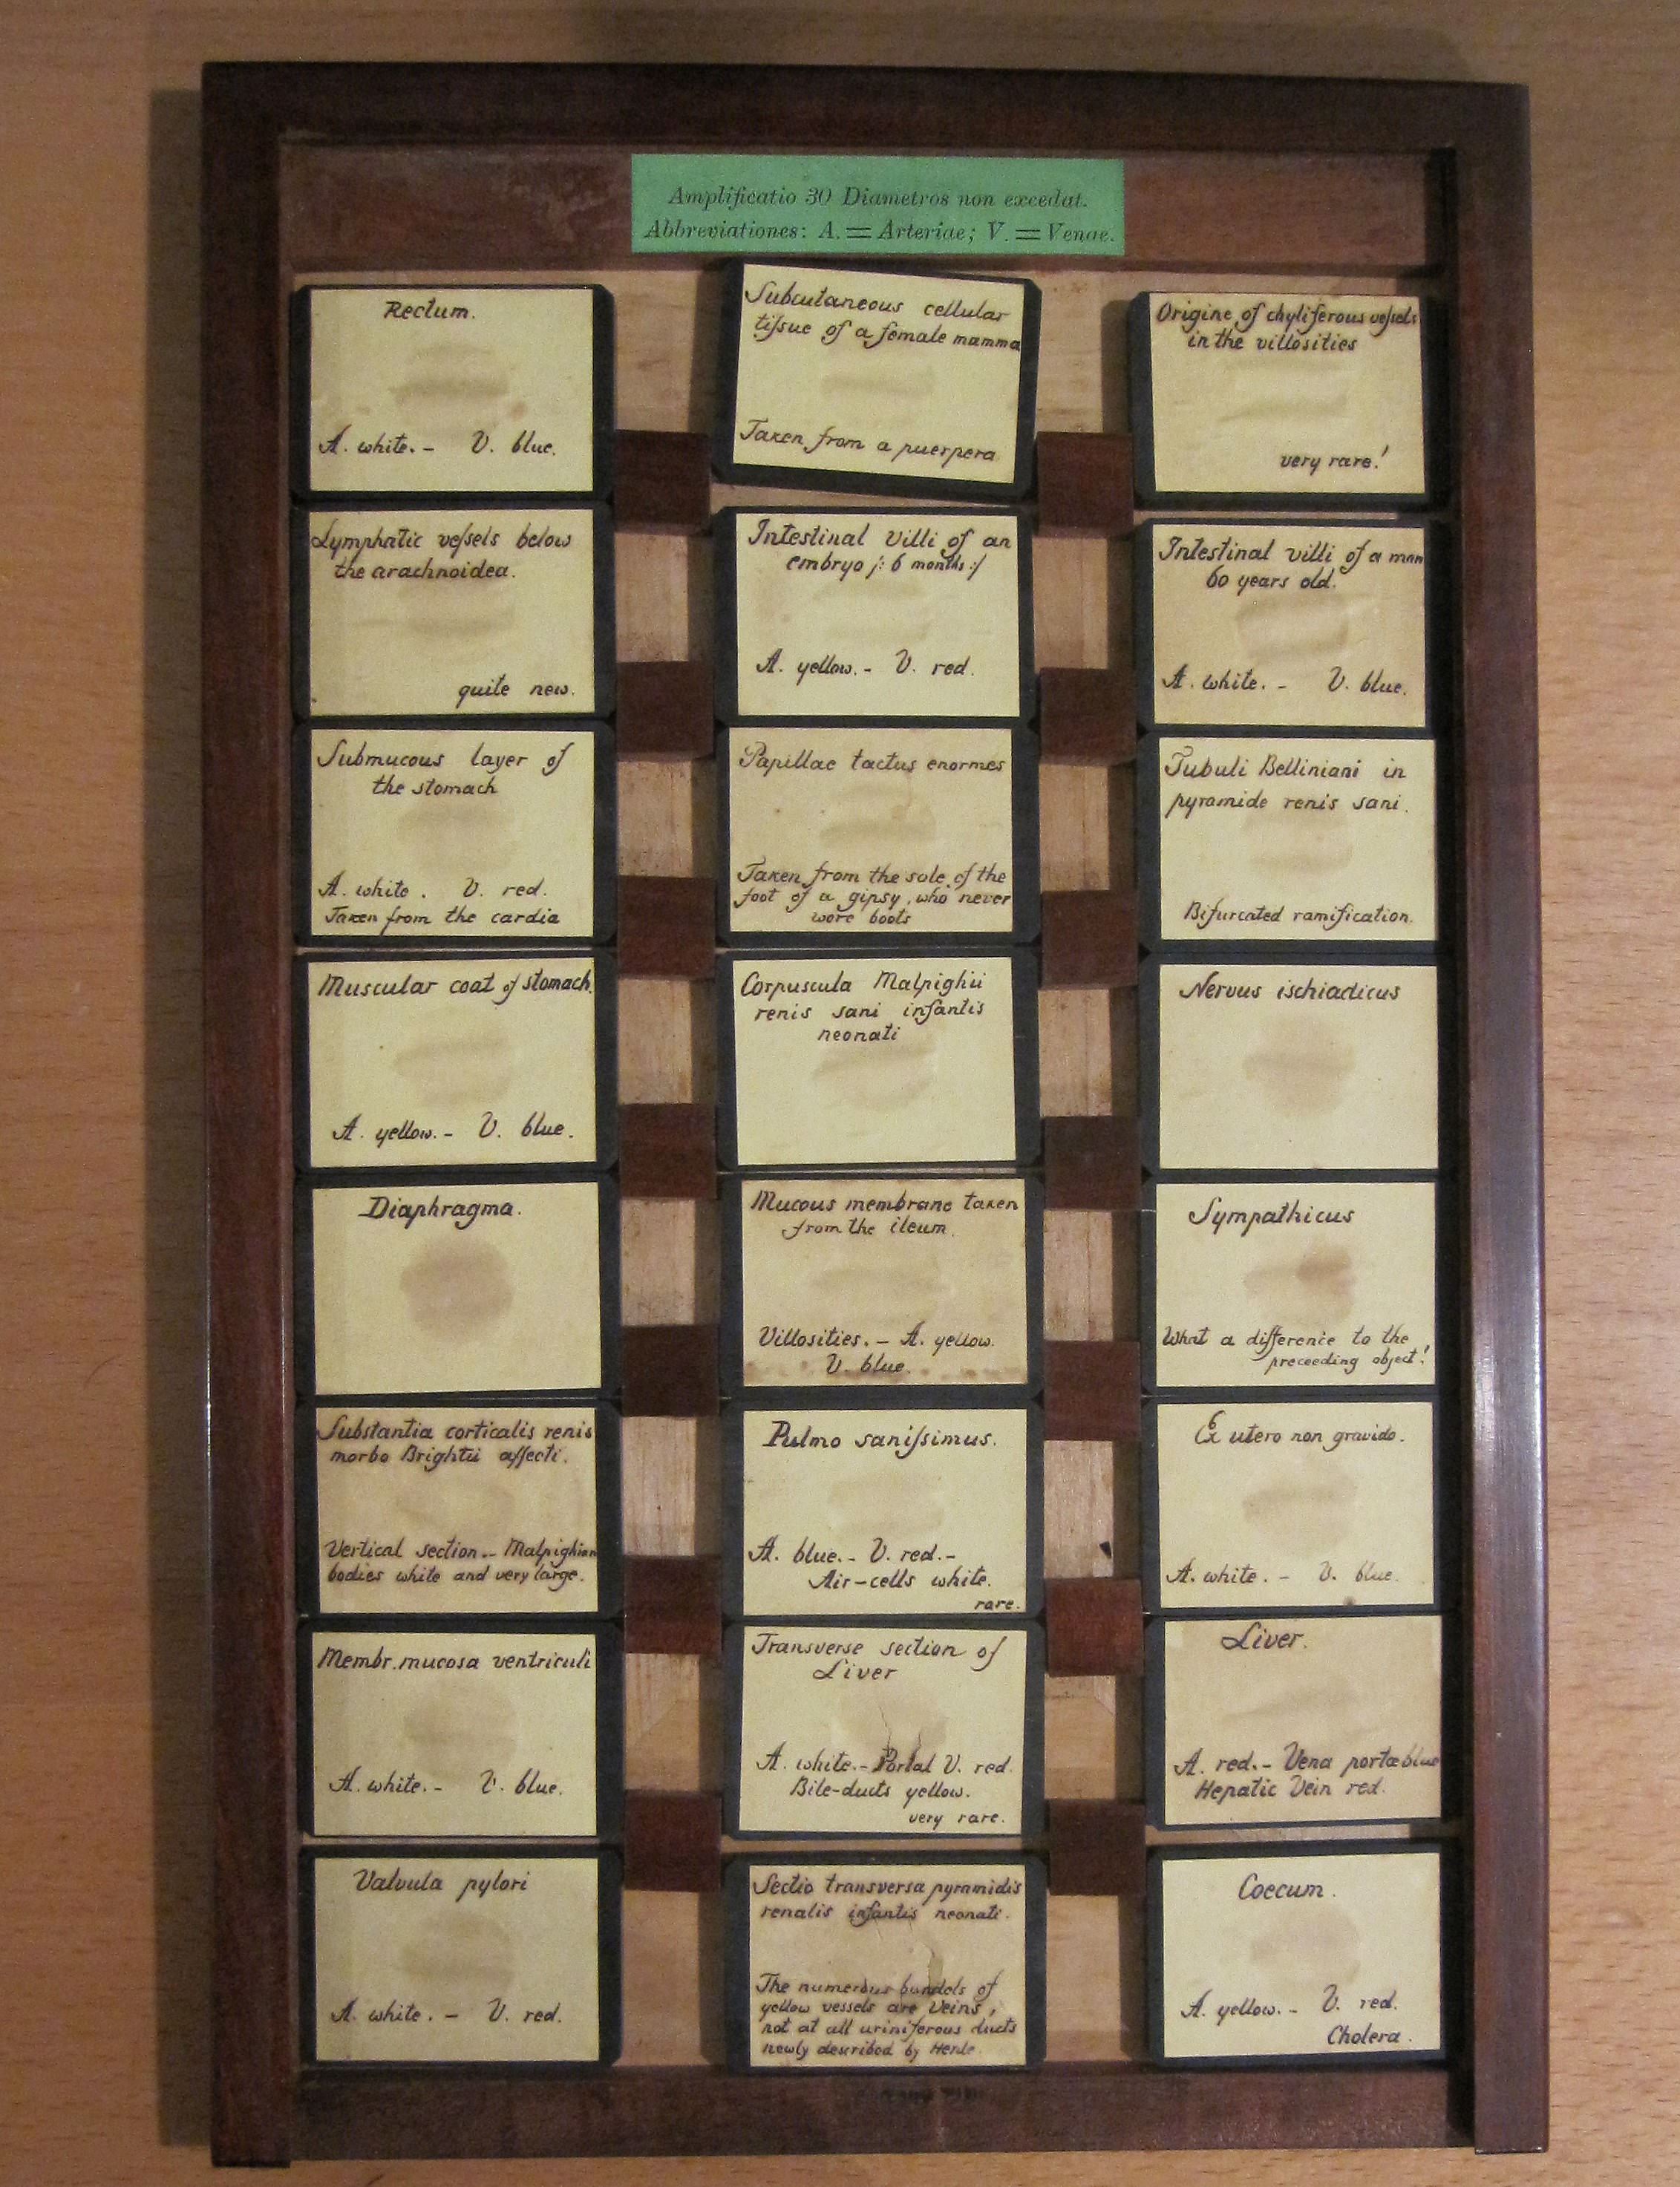 Amplificatio 30 Diametros non excedat.
Abbreviationes: A. = Arteriae; V. = Venae.
Rectum.
A. white. - V. blue.
Lymphatic veſsels below
the arachnoidea.
quite new.
Submucous layer of
the stomach
A. white. V. red.
Taken from the cardia
Muscular coat of stomach.
A. yellow. - V. blue.
Diaphragma.
Substantia corticalis renis
morbo Brightii affecti.
Vertical section. - Malpighian
bodies white and very large.
Membr. mucosa ventriculi
A. white. - V. blue.
Valvula pylori
A. white. - V. red.
Subcutaneous cellular
tiſsue of a female mamma
Taken from a puerpera
Intestinal villi of an
embryo /: 6 months :/
A. yellow. - V. red.
Papillae tactus enormes
Taken from the sole of the
foot of a gipsy, who never
wore boots
Corpuscula Malpighii
renis sani infantis
neonati
Mucous membrane taken
from the ileum.
Villosities. - A. yellow.
V. blue.
Pulmo saniſsimus.
A. blue. - V. red. -
Air-cells white.
rare.
Transverse section of
Liver
A. white. - Portal V. red.
Bile-ducts yellow.
very rare.
Sectio transversa pyramidis
renalis infantis neonati.
The numerous bundels of
yellow vessels are Veins,
not at all uriniferous ducts
newly described by Henle.
Origine of chyliferous veſsels
in the villosities
very rare!
Intestinal villi of a man
60 years old.
A. white. - V. blue.
Tubuli Belliniani in
pyramide renis sani.
Bifurcated ramification.
Nervus ischiadicus
Sympathicus
What a difference to the
preceeding object!
Ex utero non gravido.
A. white. - V. blue.
Liver.
A. red. - Vena portæ blue
Hepatic Vein red.
Coecum.
A. yellow. - V. red.
Cholera.